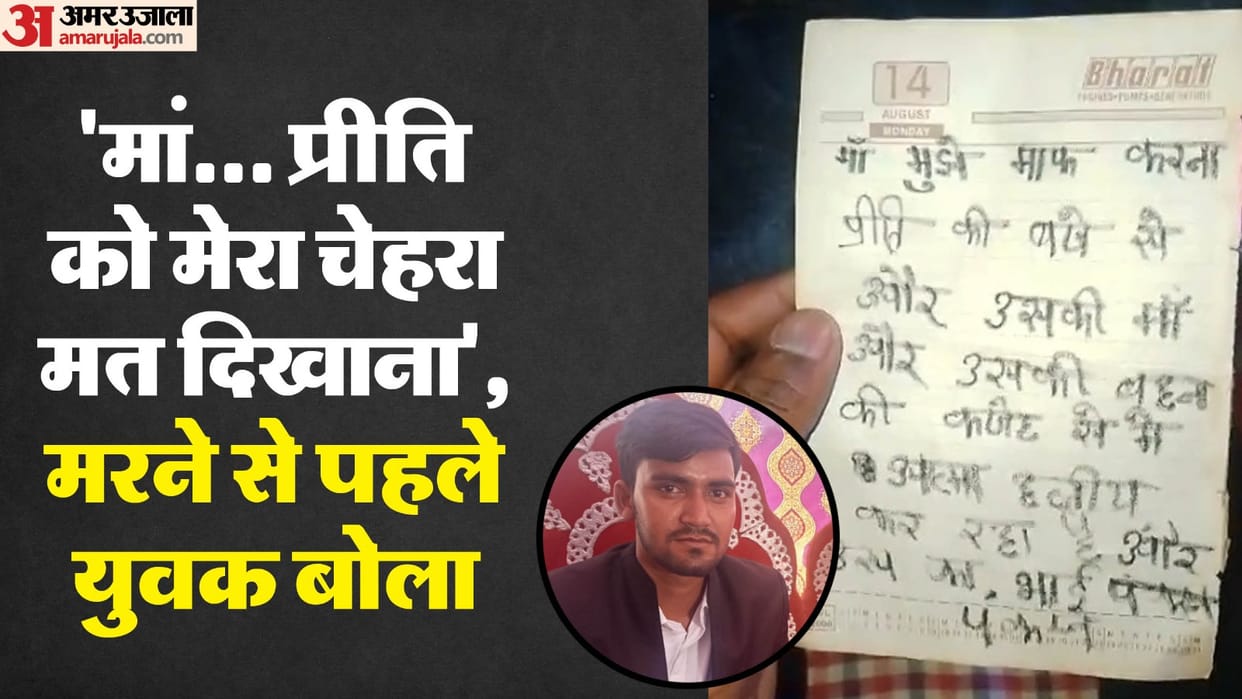 अमर उजाला
amarujala.com
'मां... प्रीति
को मेरा चेहरा
मत दिखाना',
मरने से पहले
युवक बोला
14
AUGUST
MONDAY
Bharat
ENGINES•PUMPS•GENERATORS
माँ मुझे माफ करना
प्रीति की से
और उसकी माँ
और उसकी बहन
की से मैं
कर रहा है और
भाई